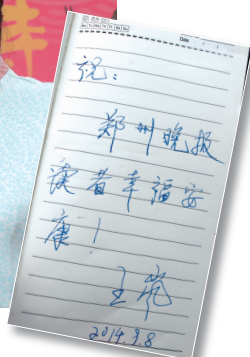 Date
祝：
郑州晚报
读者幸福安
康！
王岚
2014.9.8